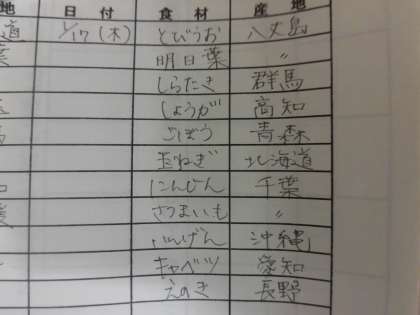 地 日 付 食 材 産 地
道 1/17(木) とびうお 八丈島
葉 明日葉 〃
しらたき 群馬
しょうが 高知
ごぼう 青森
玉ねぎ 北海道
にんじん 千葉
さつまいも 〃
いんげん 沖縄
キャベツ 愛知
えのき 長野